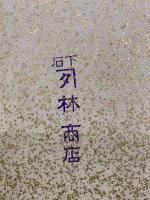 下石
林商店